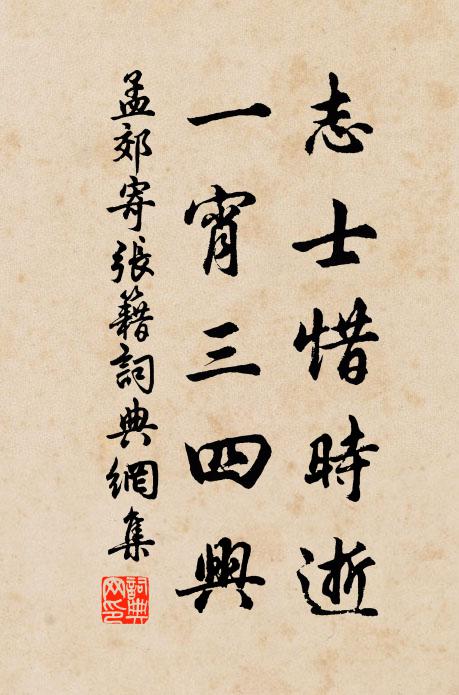 志士惜時逝
一宵三四興
孟郊寄張籍詞典網集
詞典网印